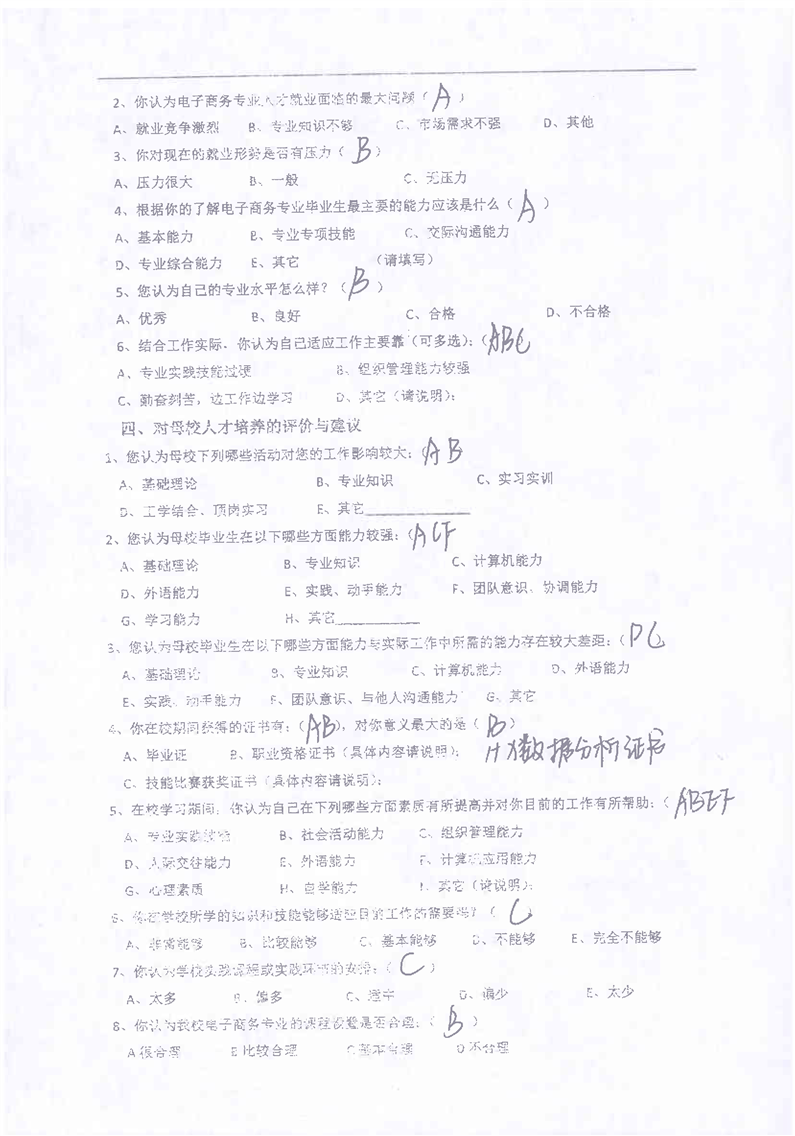 2、你认为电子商务专业人才就业面临的最大问题（ A ）
A、就业竞争激烈 B、专业知识不够 C、市场需求不强 D、其他
3、你对现在的就业形势是否有压力（ B ）
A、压力很大 B、一般 C、无压力
4、根据你的了解电子商务专业毕业生最主要的能力应该是什么（ A ）
A、基本能力 B、专业专项技能 C、交际沟通能力
D、专业综合能力 E、其它 （请填写）
5、您认为自己的专业水平怎么样？（ B ）
A、优秀 B、良好 C、合格 D、不合格
6、结合工作实际，你认为自己适应工作主要靠（可多选）：（ABC
A、专业实践技能过硬 B、组织管理能力较强
C、勤奋刻苦，边工作边学习 D、其它（请说明）：
四、对母校人才培养的评价与建议
1、您认为母校下列哪些活动对您的工作影响较大：（AB
A、基础理论 B、专业知识 C、实习实训
D、工学结合，顶岗实习 E、其它____________
2、您认为母校毕业生在以下哪些方面能力较强：（ACF
A、基础理论 B、专业知识 C、计算机能力
D、外语能力 E、实践、动手能力 F、团队意识、协调能力
G、学习能力 H、其它____________
3、您认为母校毕业生在以下哪些方面能力与实际工作中所需的能力存在较大差距：（DC）
A、基础理论 B、专业知识 C、计算机能力 D、外语能力
E、实践、动手能力 F、团队意识、与他人沟通能力 G、其它
4、你在校期间获得的证书有：（AB），对你意义最大的是（ B ）
A、毕业证 B、职业资格证书（具体内容请说明）： 数据分析证书
C、技能比赛获奖证书（具体内容请说明）：
5、在校学习期间，你认为自己在下列哪些方面素质有所提高并对你目前的工作有所帮助：（ABEF
A、专业实践技能 B、社会活动能力 C、组织管理能力
D、人际交往能力 E、外语能力 F、计算机应用能力
G、心理素质 H、自学能力 I、其它（请说明）：
6、你在学校所学的知识和技能能够适应目前工作的需要吗？（ C ）
A、非常能够 B、比较能够 C、基本能够 D、不能够 E、完全不能够
7、你认为学校实践课程或实践环节的安排：（ C ）
A、太多 B、偏多 C、适中 D、偏少 E、太少
8、你认为我校电子商务专业的课程设置是否合理：（ B ）
A很合理 B比较合理 C基本合理 D不合理